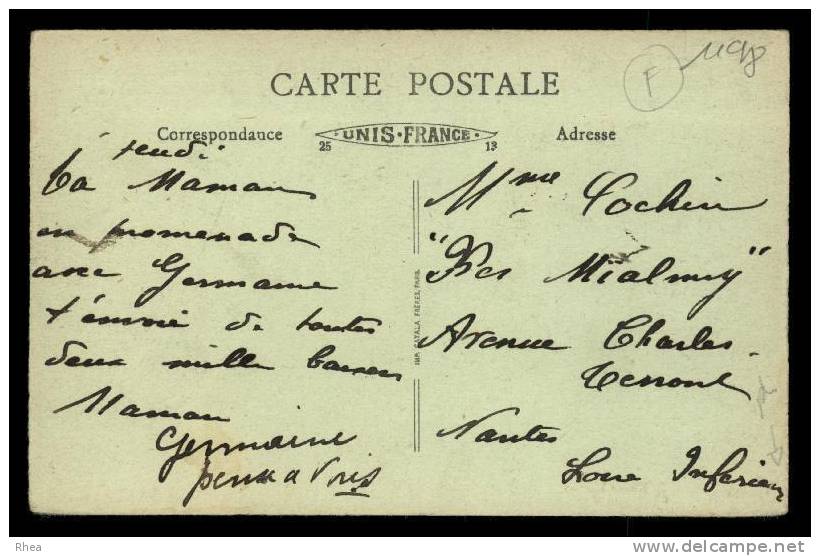 CARTE POSTALE
F
Correspondance
UNIS·FRANCE·
25 13
Adresse
Jeudi
Ta Maman
en promenade
avec Germaine
t'envoie de toutes
deux mille baisers
Maman
Germaine
pense a Vous
IMP. CATALA FRÈRES, PARIS
Mme Cochin
"Les"
Avenue Charles
Nantes
Loire Inférieure
Rhea
www.delcampe.net